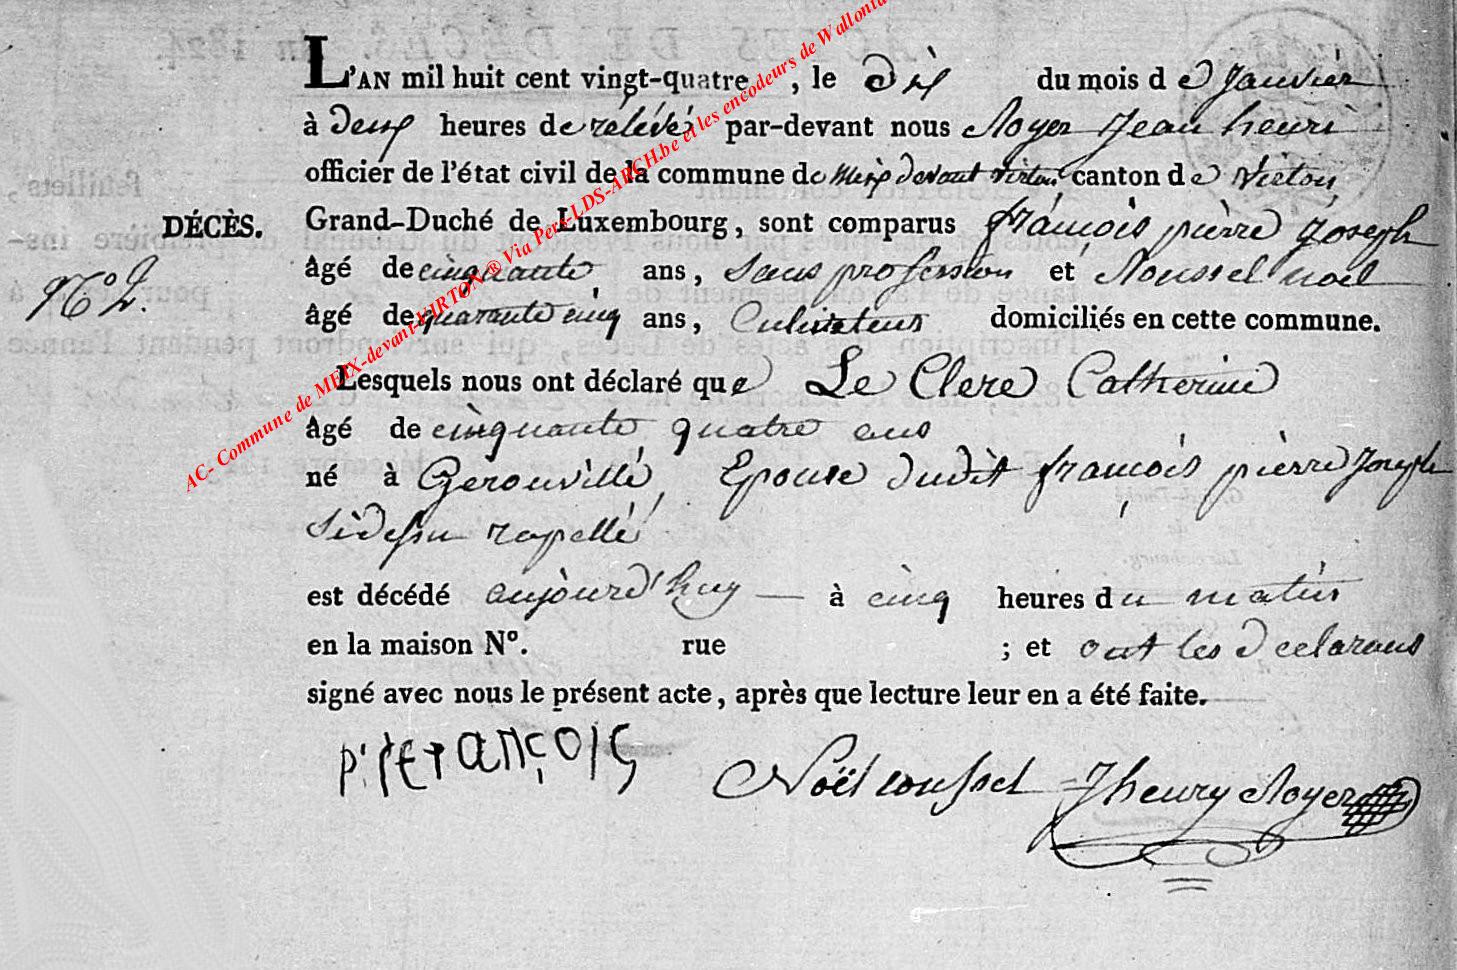 L'AN mil huit cent vingt-quatre, le dix du mois de Janvier
à deux heures de relévé par-devant nous Royer Jean henri
officier de l'état civil de la commune de Meix devant virton canton de Virton
DÉCÈS. Grand-Duché de Luxembourg, sont comparus françois pierre Joseph
N° 2. âgé de cinquante ans, Sans profession et Roussel noël
âgé de quarante cinq ans, Cultivateur domiciliés en cette commune.
Lesquels nous ont déclaré que Le Clere Catherine
âgé de cinquante quatre ans
né à Gerouville, Epouse dudit françois pierre Joseph
Sidessu rapellé
est décédé aujourd'huy — à cinq heures du matin
en la maison N°. rue ; et ont les declarans
signé avec nous le présent acte, après que lecture leur en a été faite.
françois Noël roussel Jhenry Royer
AC- Commune de MEIX-devant-VIRTON ® Via Pers-LDS-ARCH.be et les encodeurs de Wallonia